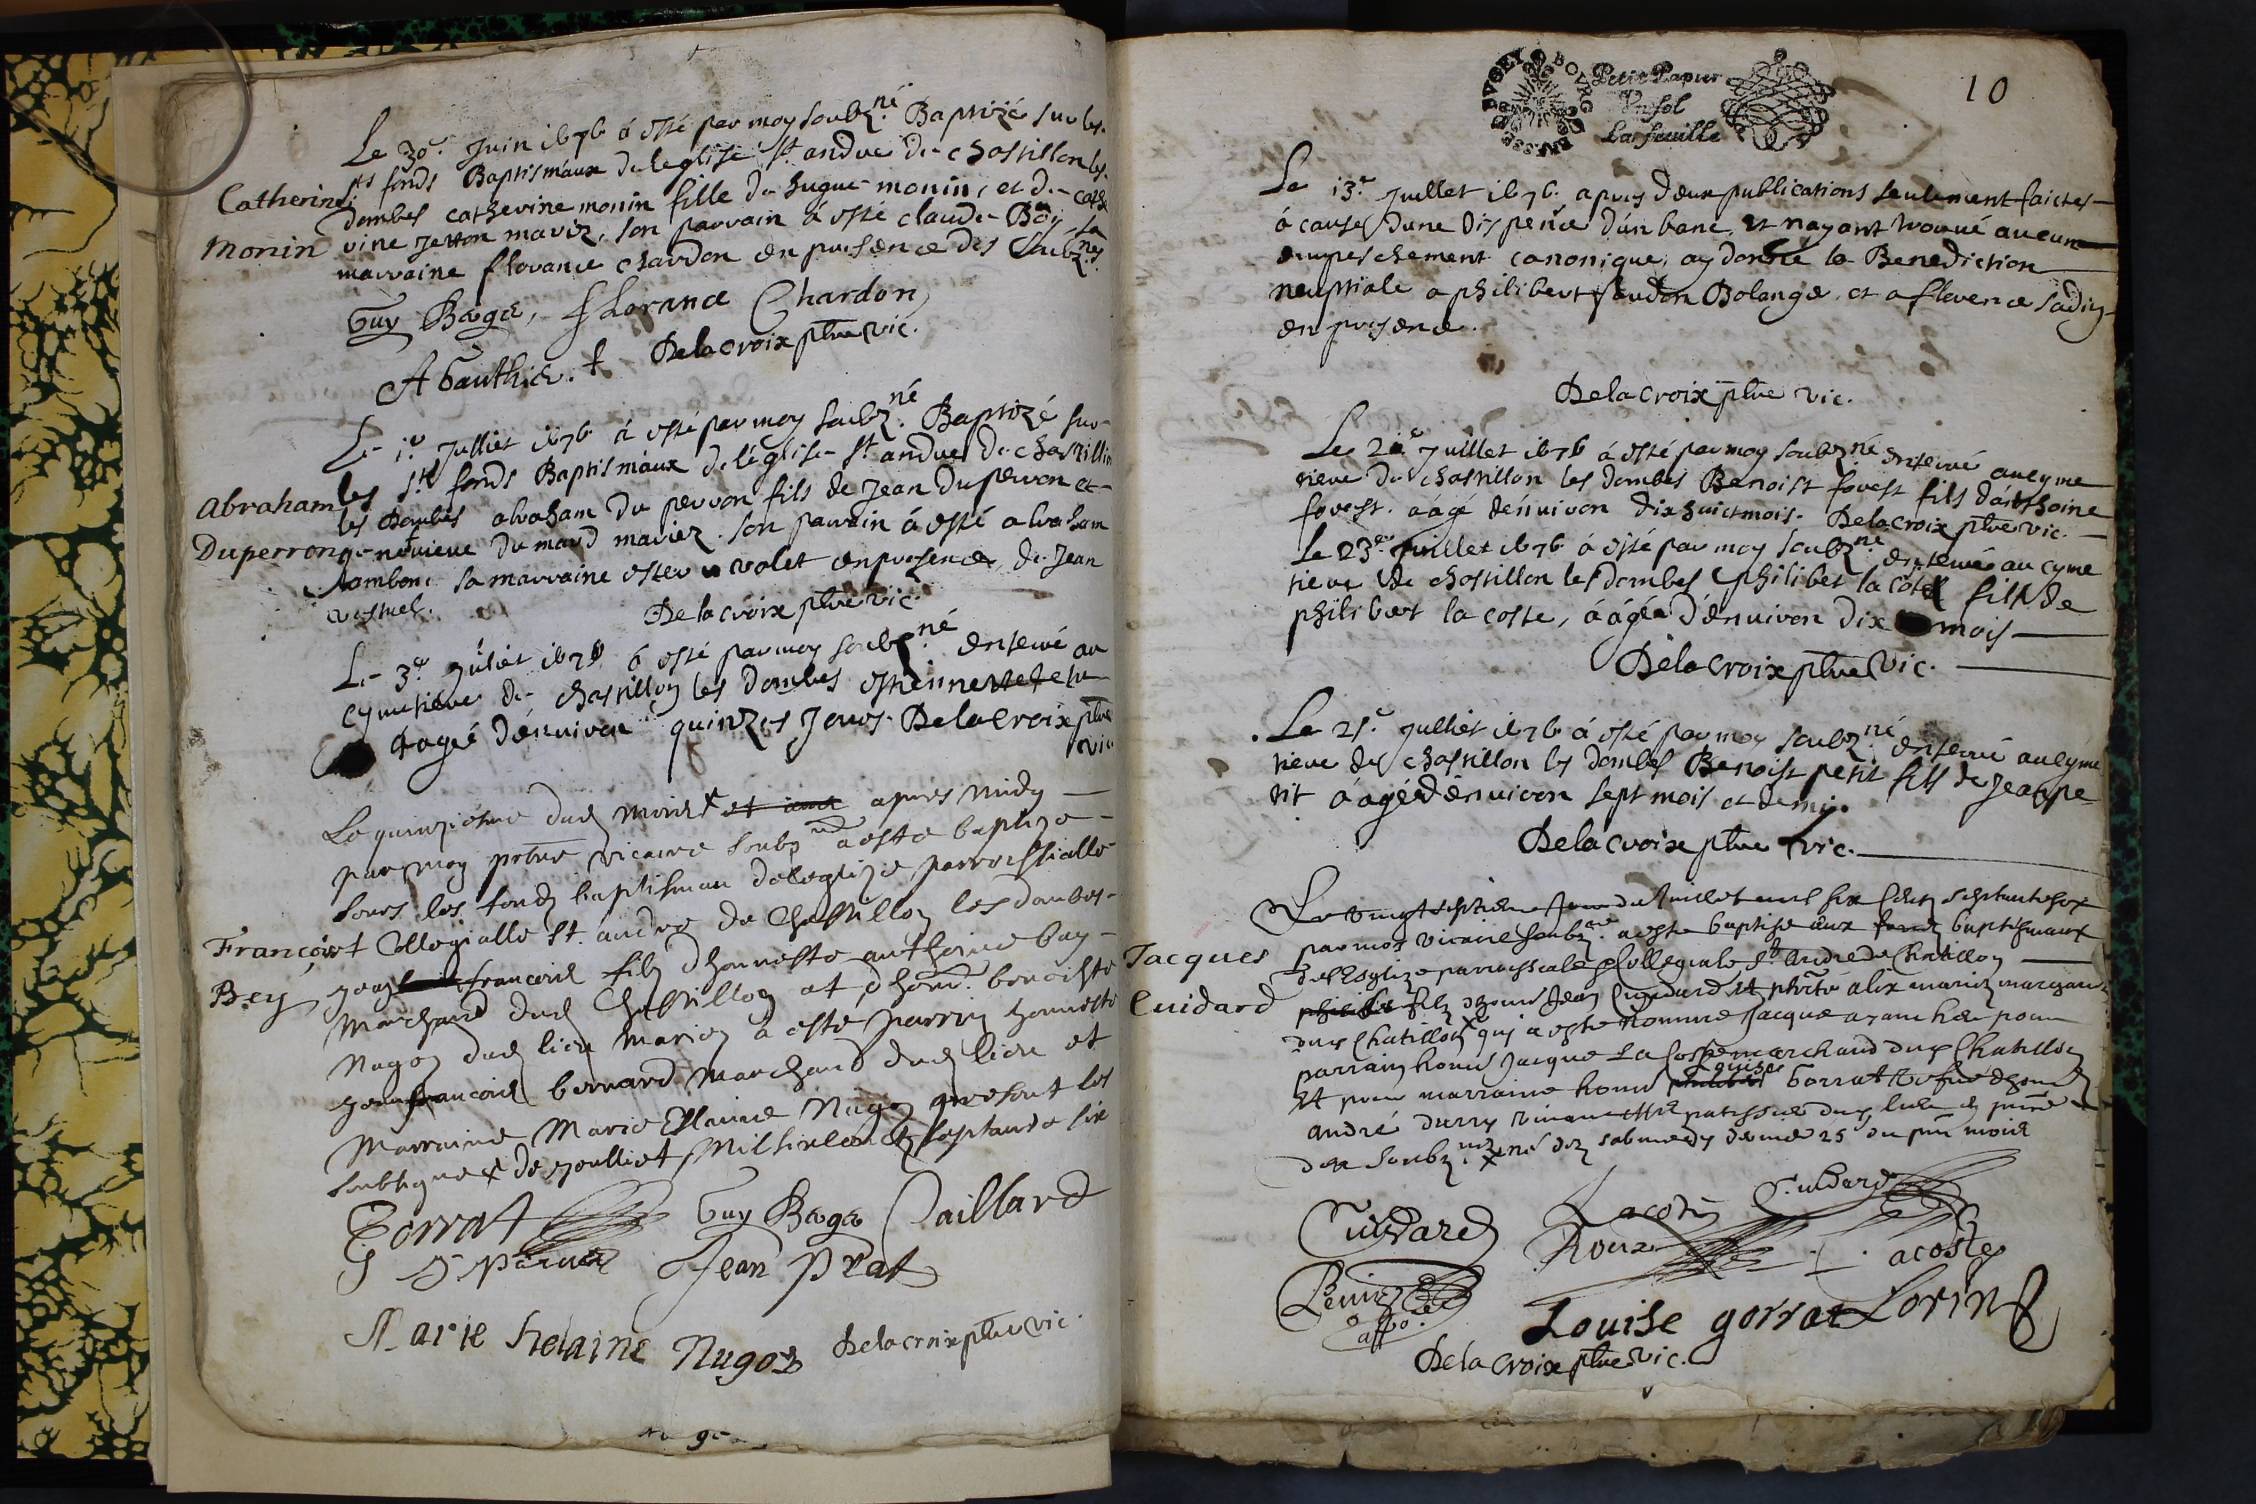 Le 30e. Juin 1676 á esté par moy soubz.né Baptizé sur les
sts fonds Baptismaux de leglise st. andre de chastillon les
Catherine
dombes catherine monin fille de hugue monin, et de cathe
Monin
rine Jetton mariez, son parrain á esté claude Boy, sa
marraine florance chardon en presence des soubz.nes
Guy Bage, fLorance Chardon
AGauthier. † Delacroix ptre vic.
Le 1er Julliet 1676 á esté par moy soubz.né Baptizé sur
les sts fonds Baptismaux de léglise st. andre de chastillon
Abraham
les Dombes abraham du perron fils de Jean Duperron et
Duperron
genevieve du mard mariez. son parrain á esté abraham
lambon. sa marraine ester volet en presence, de Jean
Delacroix ptre vic.
Le 3e Juliet 1676 á esté par moy soubz.né enterré au
cymetiere de chastillon les dombes estienne
aagé dénviron quinzes Jours. Delacroix ptre
vic
Le quinziesme dud mois x et apres midy
par moy prbre vicaire soubz né a este baptize
sours les fondz baptismau de leglize parroissialle
et Collegialle St. andre de Chastillon les dombes
François
Bey
Jean francois filz dhonneste anthoine bay
marchand dud Chastillon et dhon. benoiste
Nugoz dud lieu mariez a este parrin honneste
Jean francois bernard marchand dud lieu et
Marraine Marie Elaine Nugoz que sont les
soubsignes x de Joulliet Mil six cent septante six
Gorrat Guy Bage Caillard
Jean Prat
Marie helaine Nugoz Delacroix ptre vic.
9
BOVRG EN BRESSE BVGEY
Petit Papier
Vn sol
La feuille
10
Le 13e. Juillet 1676. apres deux publications seulement faictes
á cause dune Dispence dún banc, et nayant trouué aucun
empeschement canonique, ay donné la Benediction
neuptiale a philibert Bolange, et a florence sadin
en presence.
Delacroix ptre vic.
Le 21e Juillet 1676 á esté par moy soubz.né enterré au cyme
tiere de chastillon les dombes Benoist forest fils dánthoine
forest. áagé dénviron dix huict mois. Delacroix ptre vic.
Le 23e. Juillet 1676 á esté par moy soubz.né enterré au cyme
tiere de chastillon les Dombes philibet la coste fils de
philibert la coste, áagée dénviron dix mois
Delacroix ptre vic.
Le 25e. Julliet 1676 á esté par moy soubz.né enterré au cyme
tiere de chastillon les dombes Benoist petit fils de Jean pe
tit áagé dénviron sept mois et demy.
Delacroix ptre vic.
Le vingt septiesme Jour de Juillet mil six cents septante six
par moy vicaire soubz.né a este baptise aux fondz baptismaux
Jacques
de lEsglize parroissiale et Collegiale st. Andre de Chatillon
Cuidard
filz dhonn Jean Cuidard et alix mariez marchand
dud Chatillon x qui a este nomme Jacque ayant heu pour
parrain honn Jacque La Coste marchand dud Chatillon
Et pour marraine honn Louise Gorrat vefue dhonn
andré durry vivant patissier dud lieu
des soubz.nez x né dez 25 du mois
Cuidard Lacoste Cuidard
Roux Lacoste
Louise gorrat Lorin
Delacroix ptre vic.